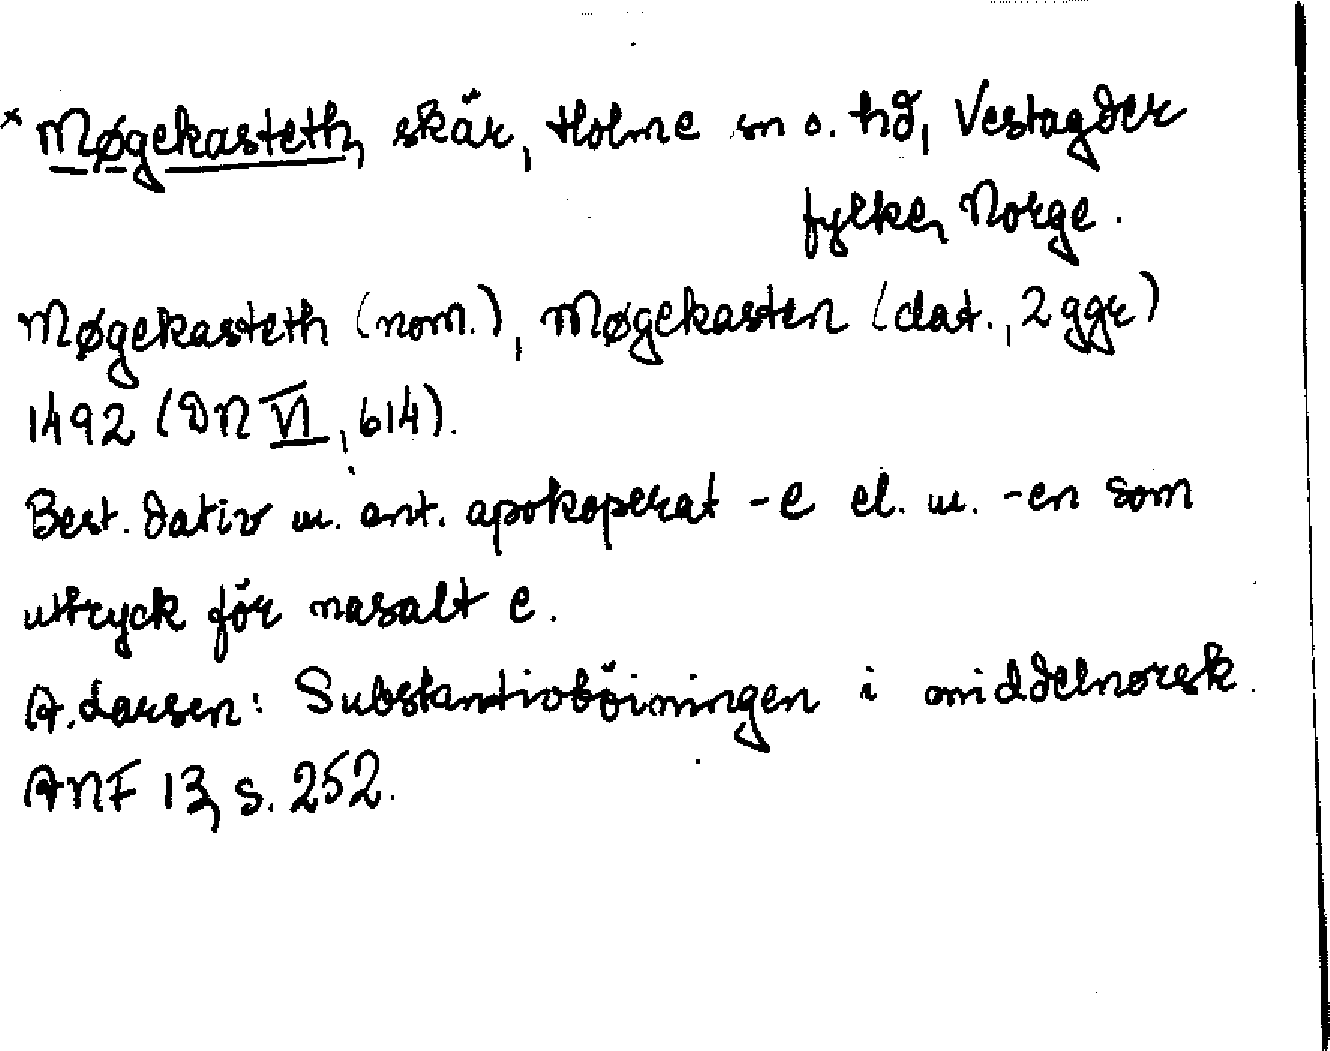 × Møgekasteth, skär, Holme sn o. hd, Vestagder
fylke, Norge.
Møgekasteth (nom.), Møgekasten (dat., 2 ggr)
1492 (DN VI, 614).
Best. dativ m. ant. apokoperat -e el. m. -en som
uttryck för nasalt e.
A. Larsen: Substantivböiningen i middelnorsk.
ANF 13, s. 252.